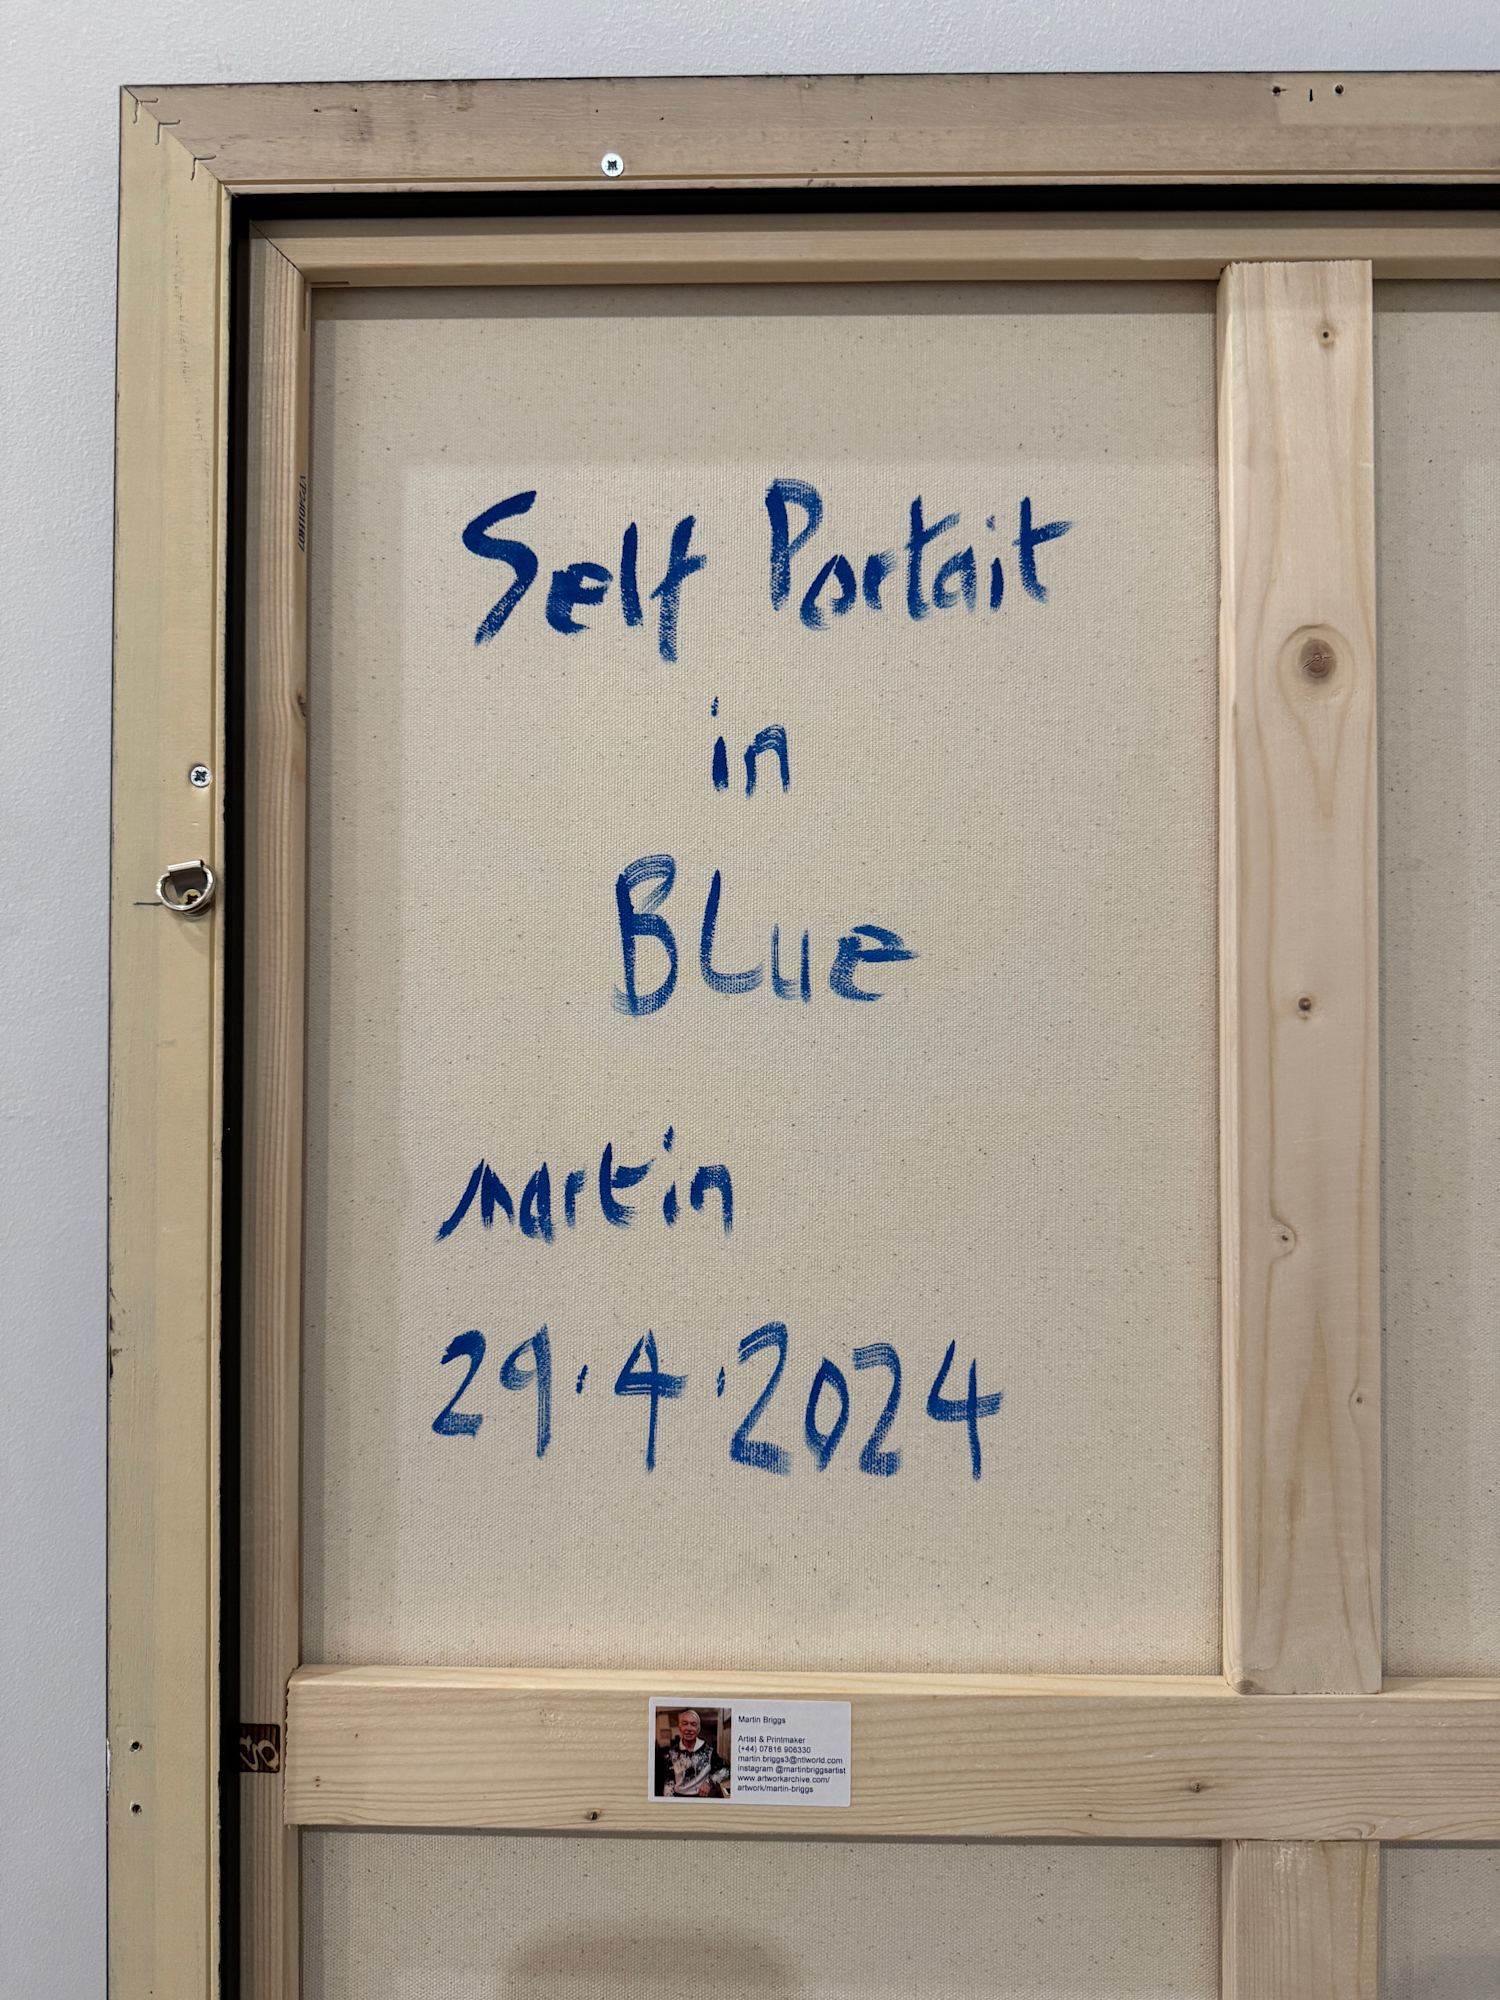 Self Portait
in
BLue
martin
29·4·2024
Martin Briggs
Artist & Printmaker
(+44) 07816 906330
martin.briggs3@ntlworld.com
instagram @martinbriggsartist
www.artworkarchive.com/
artwork/martin-briggs